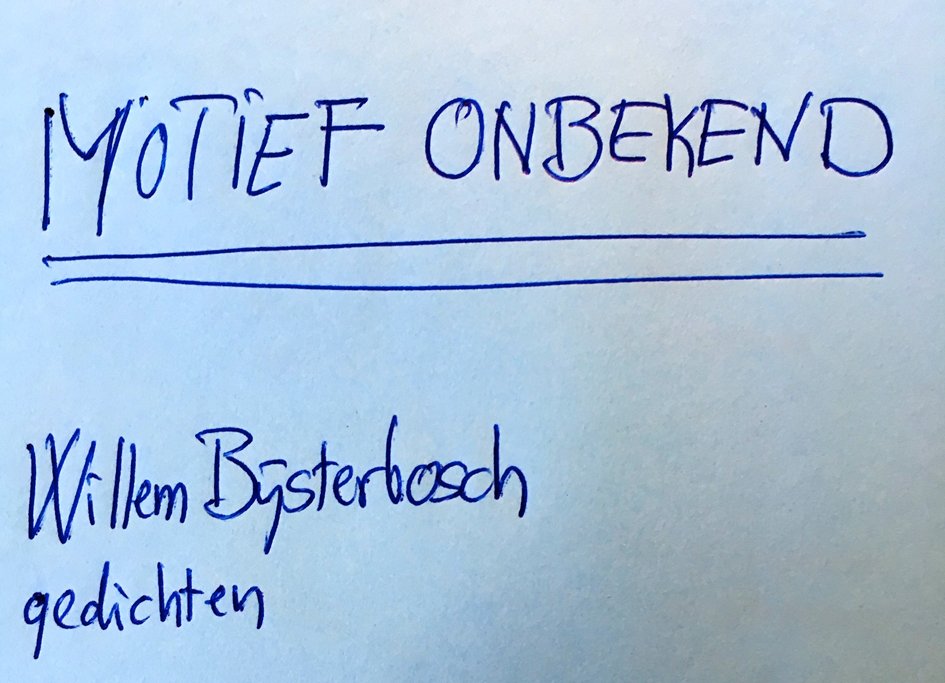 MOTIEF ONBEKEND
Willem Bijsterbosch
gedichten